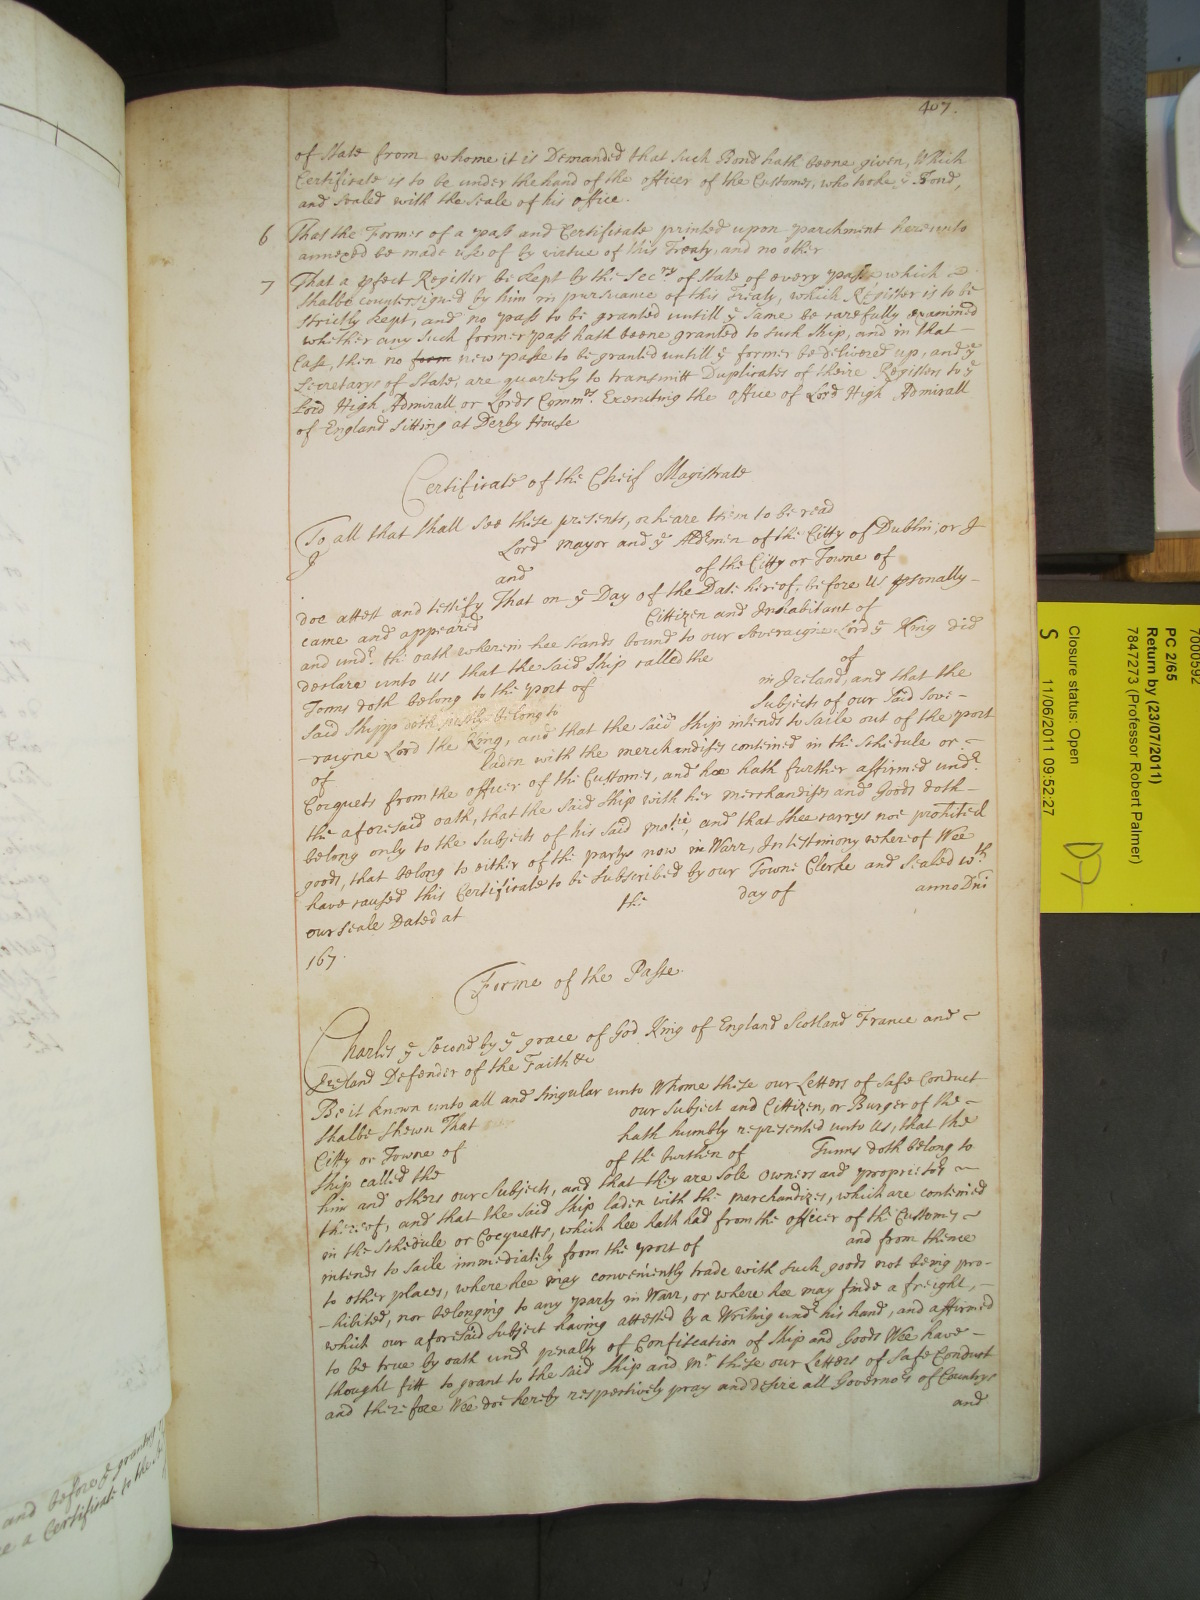 407.
of State from whome it is Demanded that such Bond hath beene given, Which
Certificate is to be under the hand of the officer of the Customes, who tooke ye Bond,
and sealed with the seale of his office.
6 That the Formes of a pass and Certificate printed upon parchment hereunto
annexed be made use of by virtue of this Treaty, and no other
7 That a pfect Register be kept by the Secry of State of every passe which
shalbe countersigned by him in pursuance of this Treaty, which Register is to be
strictly kept, and no pass to be granted untill ye same be carefully examined
whether any such former pass hath beene granted to such ship, and in that
Case, then no form new passe to be granted untill ye former be delivered up, and ye
Secretarys of State, are quarterly to transmitt Duplicates of theire Registers to ye
Lord High Admirall or Lords Commrs. Executing the office of Lord High Admirall
of England sitting at Derby House
Certificate of the Cheif Magistrate
To all that shall see these presents, or heare them to be read
J Lord Mayor and ye Aldrmen of the Citty of Dublin, or J
and of the Citty or Towne of
doe attest and testify That on ye Day of the Date hereof, before Us psonally
came and appeared Cittizen and Inhabitant of
and undr. the oath wherein hee stands bound to our Soveraigne Lord ye King did
declare unto Us that the said Ship called the of
Tonns doth belong to the port of in Ireland, and that the
said Shipp doth justly belong to Subjects of our said Sove-
-raigne Lord the King, and that the said Ship intends to saile out of the port
of laden with the merchandises conteined in the schedule or
Cocquets from the officer of the Customes, and hee hath further affirmed undr.
the aforesaid oath, that the said Ship with her Merchandises and Goods doth
belong only to the Subjects of his said Matie, and that shee carrys noe prohibited
goods, that belong to either of the partys now in Warr, In testimony whereof Wee
have caused this Certificate to be subscribed by our Towne Clerke and sealed wth
our seale Dated at the day of anno Dni
167
Forme of the Passe
Charles ye Second by ye grace of God King of England Scotland France and
Ireland Defender of the Faith &c
Be it known unto all and singular unto Whome these our Letters of safe Conduct
shalbe shewn That our subject and Cittizen, or Burger of the
Citty or Towne of hath humbly represented unto Us, that the
ship called the of the burthen of Tunns doth belong to
him and others our subjects, and that they are sole owners and proprietors
thereof, and that the said Ship laden with the merchandizes, which are conteined
in the schedule or Cocquetts, which hee hath had from the officer of the Customes
intends to saile immediately from the port of and from thence
to other places, where hee may conveniently trade with such goods not being pro-
-hibited, nor belonging to any party in Warr, or where hee may finde a freight,
which our aforesaid subject having attested by a Writing undr his hand, and affirmed
to be true by oath undr penalty of Confiscation of Ship and Goods Wee have
thought fitt to grant to the said Ship and Mr these our Letters of safe Conduct
and therefore Wee doe hereby respectively pray and desire all Governors of Countrys
and
and before ye granting
a Certificate to the
7000592
PC 2/65
Return by (23/07/2011)
7847273 (Professor Robert Palmer)
Closure status: Open
S 11/06/2011 09:52:27